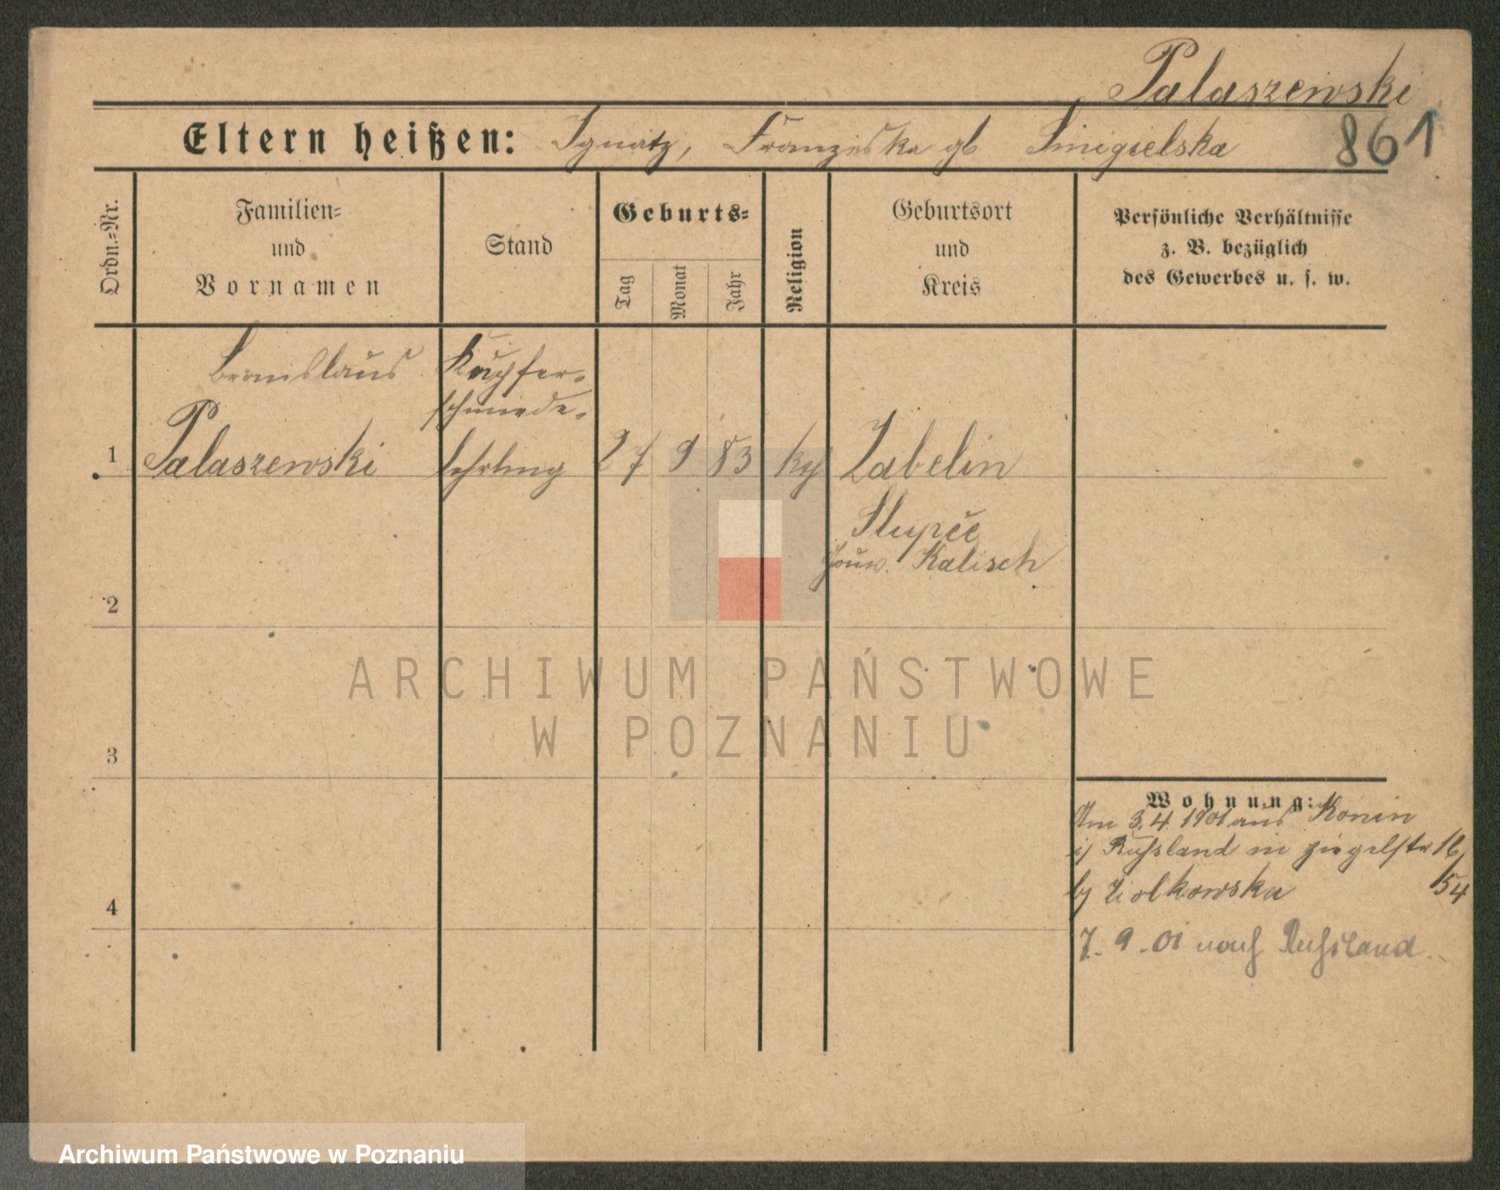 Palaszewski
861
Eltern heißen: Ignatz, Franziska gb Smigielska
Ordn.-Nr.
Familien-
und
Vornamen
Stand
Geburts-
Tag
Monat
Jahr
Religion
Geburtsort
und
Kreis
Persönliche Verhältnisse
z. B. bezüglich
des Gewerbes u. s. w.
Bronislaus
Kupfer-
schmiede-
1 Palaszewski lehrling 27 9 83 Zabelin
Slupce
Gouv. Kalisch
2
ARCHIWUM PAŃSTWOWE
W POZNANIU
3
Wohnung:
Am 3.4.1901 aus Konin
Russland in Ziegelstr 16/
54
Ziolkowska
4
7.9.01 nach Russland.
Archiwum Państwowe w Poznaniu